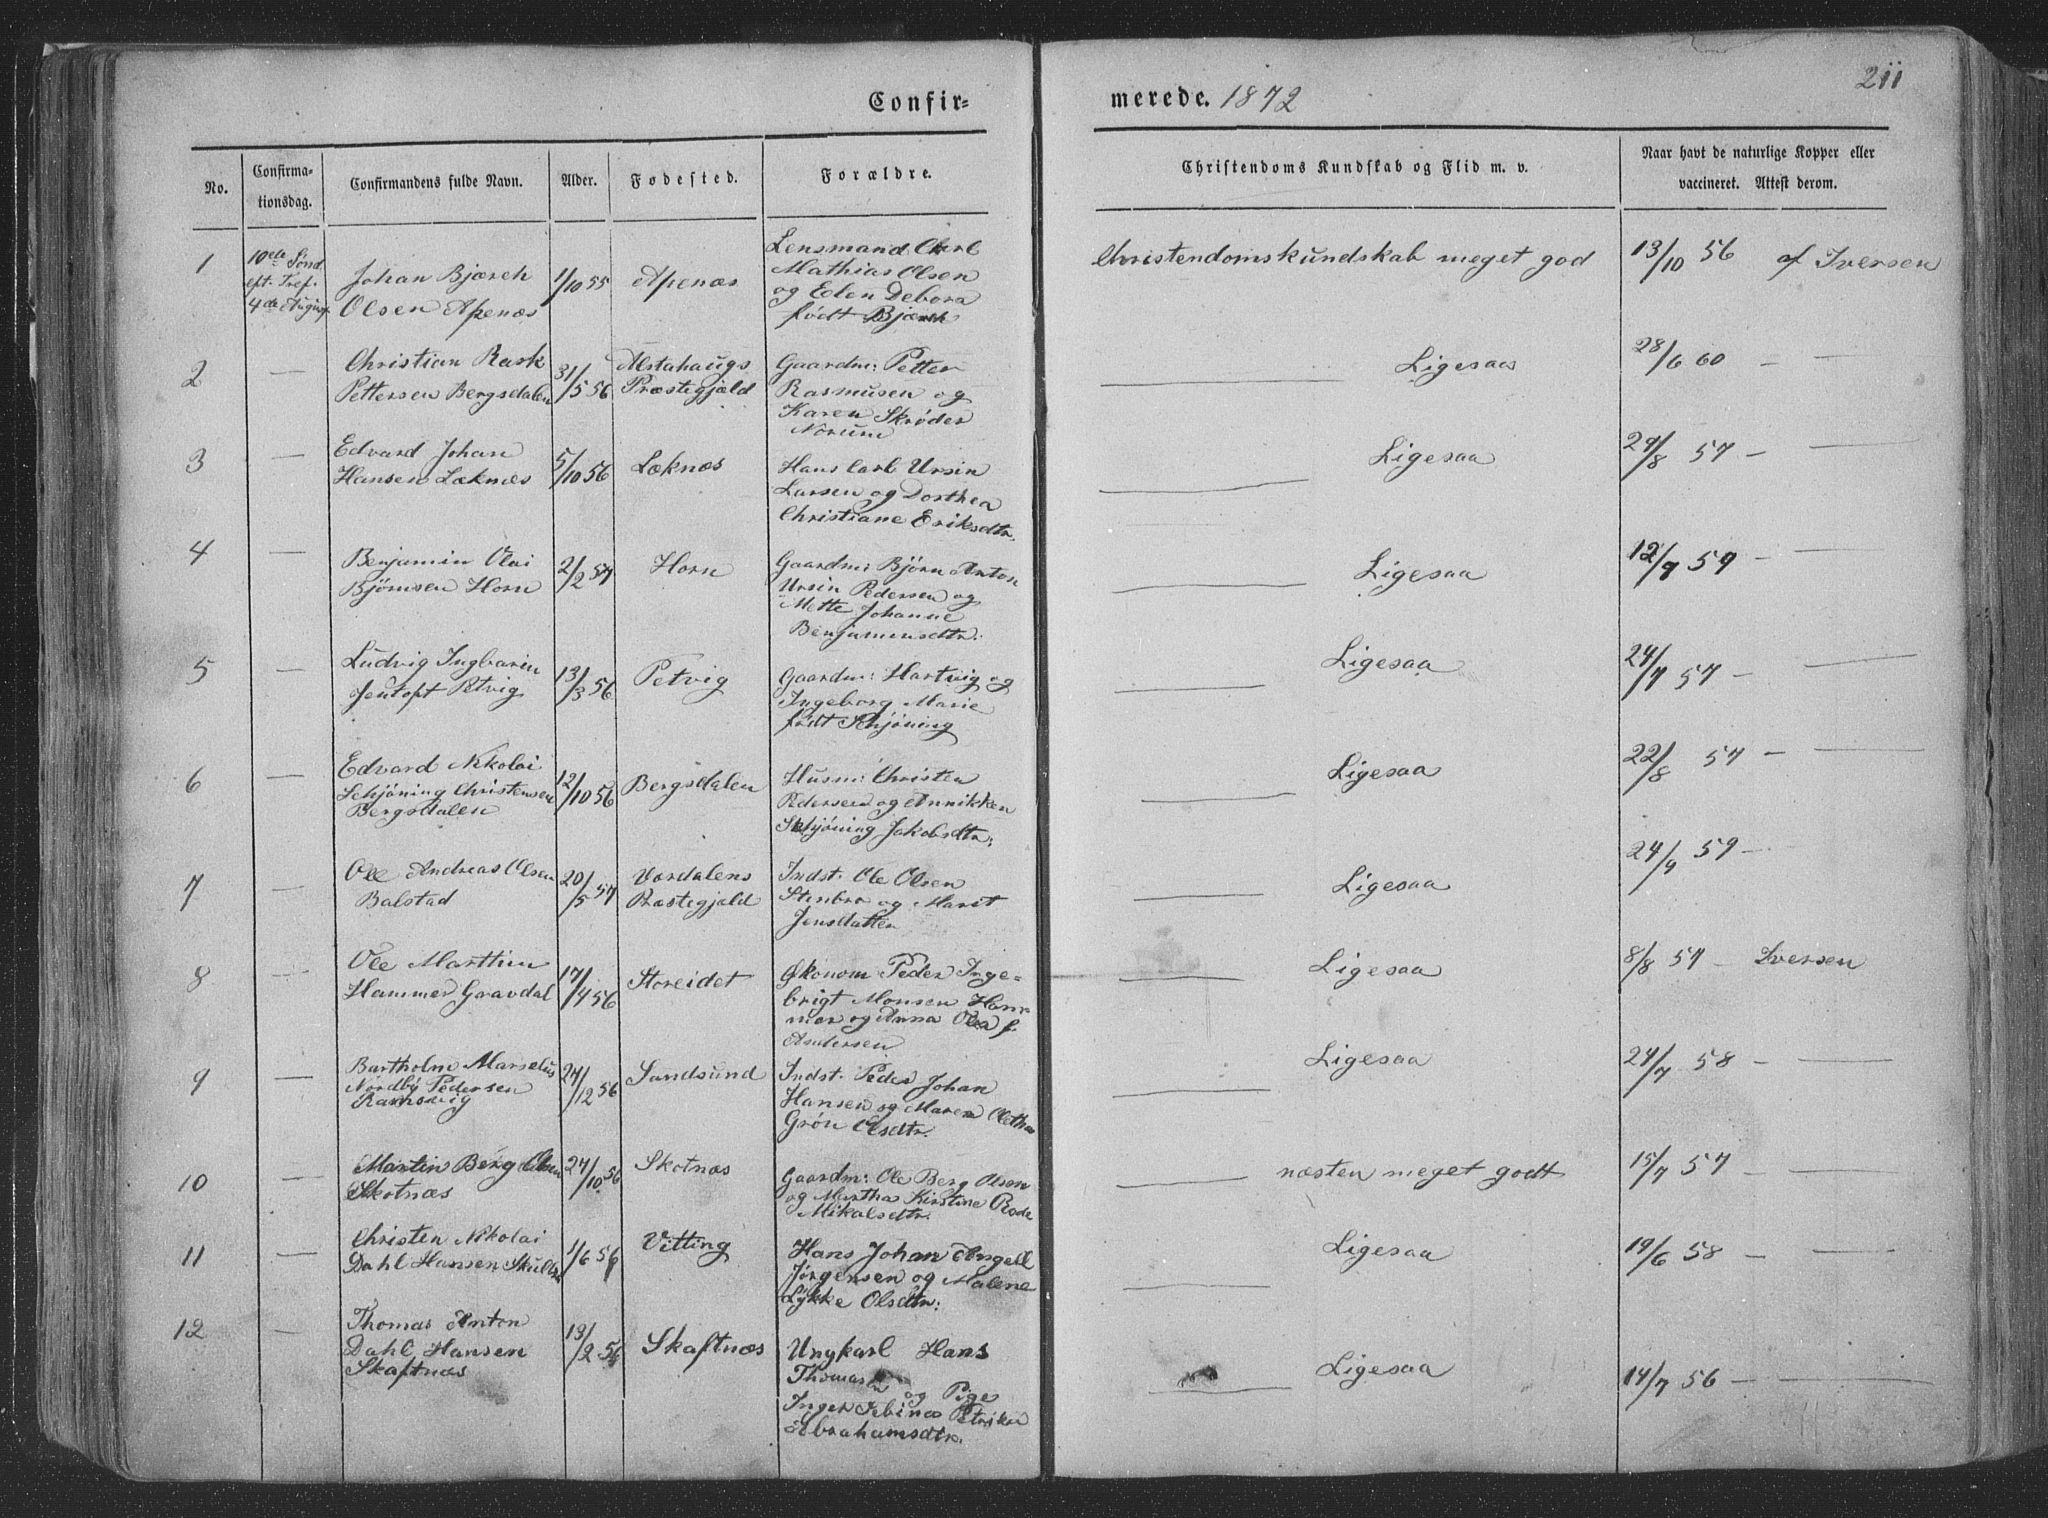 211
Confir-
merede. 1872
No.
Confirma-
tionsdag.
Confirmandens fulde Navn.
Alder.
Fødested.
Forældre.
Christendoms Kundskab og Flid m. v.
Naar havt de naturlige Kopper eller
vaccineret. Attest derom.
1
10de Sønd.
eft. Tref.
4de August
Johan Bjærch
Olsen Apenæs
1/10 55
Apenæs
Lensmand Carl
Mathias Olsen
og Elen Debora
født Bjærch
Christendomskundskab meget god
13/10 56 af Iversen
2
—
Christian Rask
Pettersen Bergsdalen
31/5 56
Alstahaugs
Præstegjæld
Gaardm: Petter
Rasmusen og
Karen Skrøder
Norum
— Ligesaa
28/6 60 — —
3
Edvard Johan
Hansen Læknæs
5/10 56
Læknæs
Hans Carl Ursin
Larsen og Dorthea
Christiane Eriksdtr.
— Ligesaa
29/8 57 — —
4
—
Benjamin Olai
Bjørnsen Horn
2/2 57
Horn
Gaardm: Bjørn Anton
Ursin Pedersen og
Mette Johanne
Benjaminsdtr.
— Ligesaa
12/7 59 — —
5
—
Ludvig Ingbarin
Jentoft Petvig
13/3 56
Petvig
Gaardm: Hartvig og
Ingeborg Marie
født Schjøning
— Ligesaa
24/7 57 — —
6
—
Edvard Nikolai
Schjöning Christensen
Bergsdalen
12/10 56
Bergsdalen
Husm: Christen
Pedersen og Annikken
Schjøning Jakobsdtr:
— Ligesaa
22/8 57 — —
7
—
Ole Andreas Olsen
Balstad
20/5 57
Værdalens
Præstegjæld
Indst. Ole Olsen
Stenbro og Marit
Jensdatter
— Ligesaa
24/9 59 —
8
—
Ole Marthin
Hammer Gravdal
17/4 56
Storeidet
Økonom Peder Inge-
brigt Monsen Ham-
mer og Anna Olea f.
Andersen
— Ligesaa
8/8 57 — Iversen
9
—
Bartholme Marselius
Nordby Pedersen
Ramsvig
24/12 56
Sundsund
Indst. Peder Johan
Hansen og Maren Olethea
Grøn Olsdtr.
— Ligesaa
24/7 58 — —
10
Martin Berg Olsen
Skotnæs
24/10 56
Skotnæs
Gaardm: Ole Berg Olsen
og Martha Kirstine Rode
Mikalsdtr.
— næsten meget godt
15/7 57 — —
11
—
Christen Nikolai
Dahl Hansen
1/6 56
Vitting
Hans Johan Angell
Jørgensen og Malene
Lykke Olsdtr:
— Ligesaa
19/6 58 — —
12
—
Thomas Anton
Dahl Hansen
Skaftnæs
13/2 56
Skaftnæs
Ungkarl Hans
Thomasen
og Pige
Inger
Abrahamsdtr.
— Ligesaa
14/7 56 — —